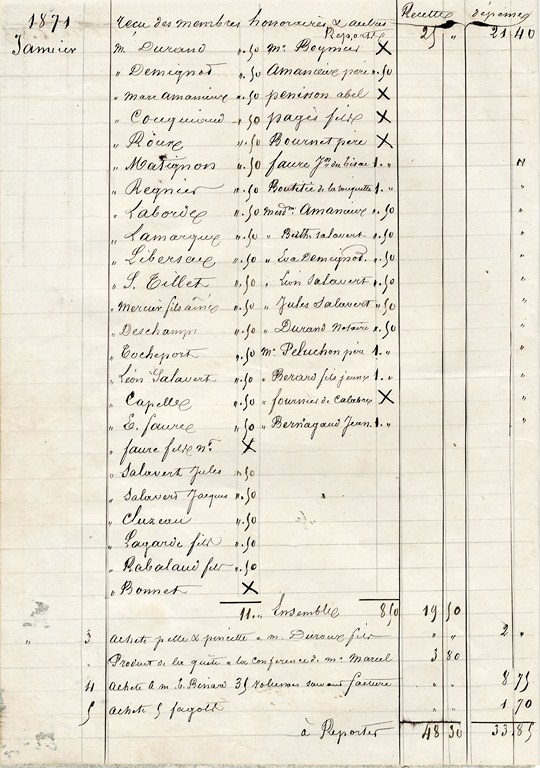 1871 reçu des membres honoraires & autres Recette dépense
Janvier Report 25 " 21 40
Mr Durand ".50 Mr Boynier X
" Demignot ".50 Amanieux père ".50
" Marc Amanieux ".50 penisson abel X
" Cocquiaud ".50 pagès fils X
" Roux ".50 Bournet père X
" Matignon ".50 faure Jne du bisac 1. "
" Regnier ".50 Boutitie de la 1. "
" Laborde ".50 Amanieux ".50
" Lamarque ".50 " Berthe Salavert ".50
" Libersac ".50 " Eva Demignot ".50
" S. Tillet ".50 " Léon Salavert ".50
" Mercier fils ainé ".50 " Jules Salavert ".50
" Deschamps ".50 " Durand Notaire ".50
" Rocheport ".50 Mr Peluchon père 1. "
" Léon Salavert ".50 " Berard fils jeune 1. "
" Capelle ".50 " fournier de Calabre X
" E. faure ".50 " Bernagaud Jean 1. "
" faure felix X
" Salavert Jules ".50
" Salavert Jacques ".50
" Cluzeau ".50
" Lagarde fils ".50
" Rabaland fils ".50
" Bonnet X
11. " Ensemble 8 50 19 50
" 3 acheté pelle & pincette a m. Duroux fils " " 2 "
Produit de la quête a la conference de mr Marcel 3 80
4 acheté a m E. Benard 35 suivant facture " " 8 75
5 acheté 5 fagots " " 1 70
à Reporter 48 30 33.85